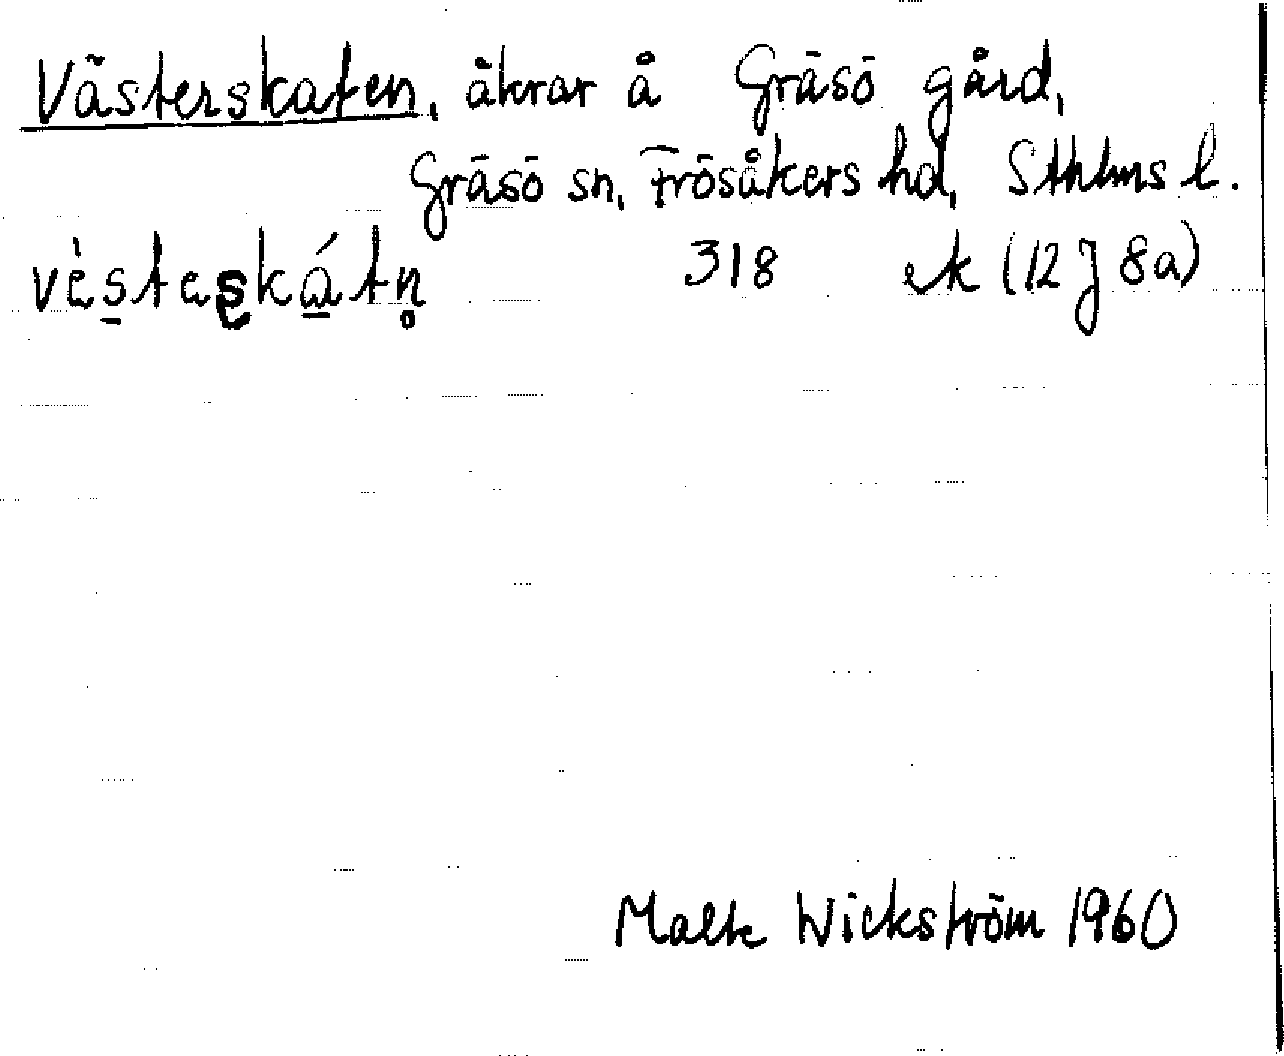 Västerskaten, åkrar å Gräsö gård,
Gräsö sn, Frösåkers hd, Sthlms l.
vèsteskátn̥ 318 ek (12 J 8a)
Malte Wickström 1960